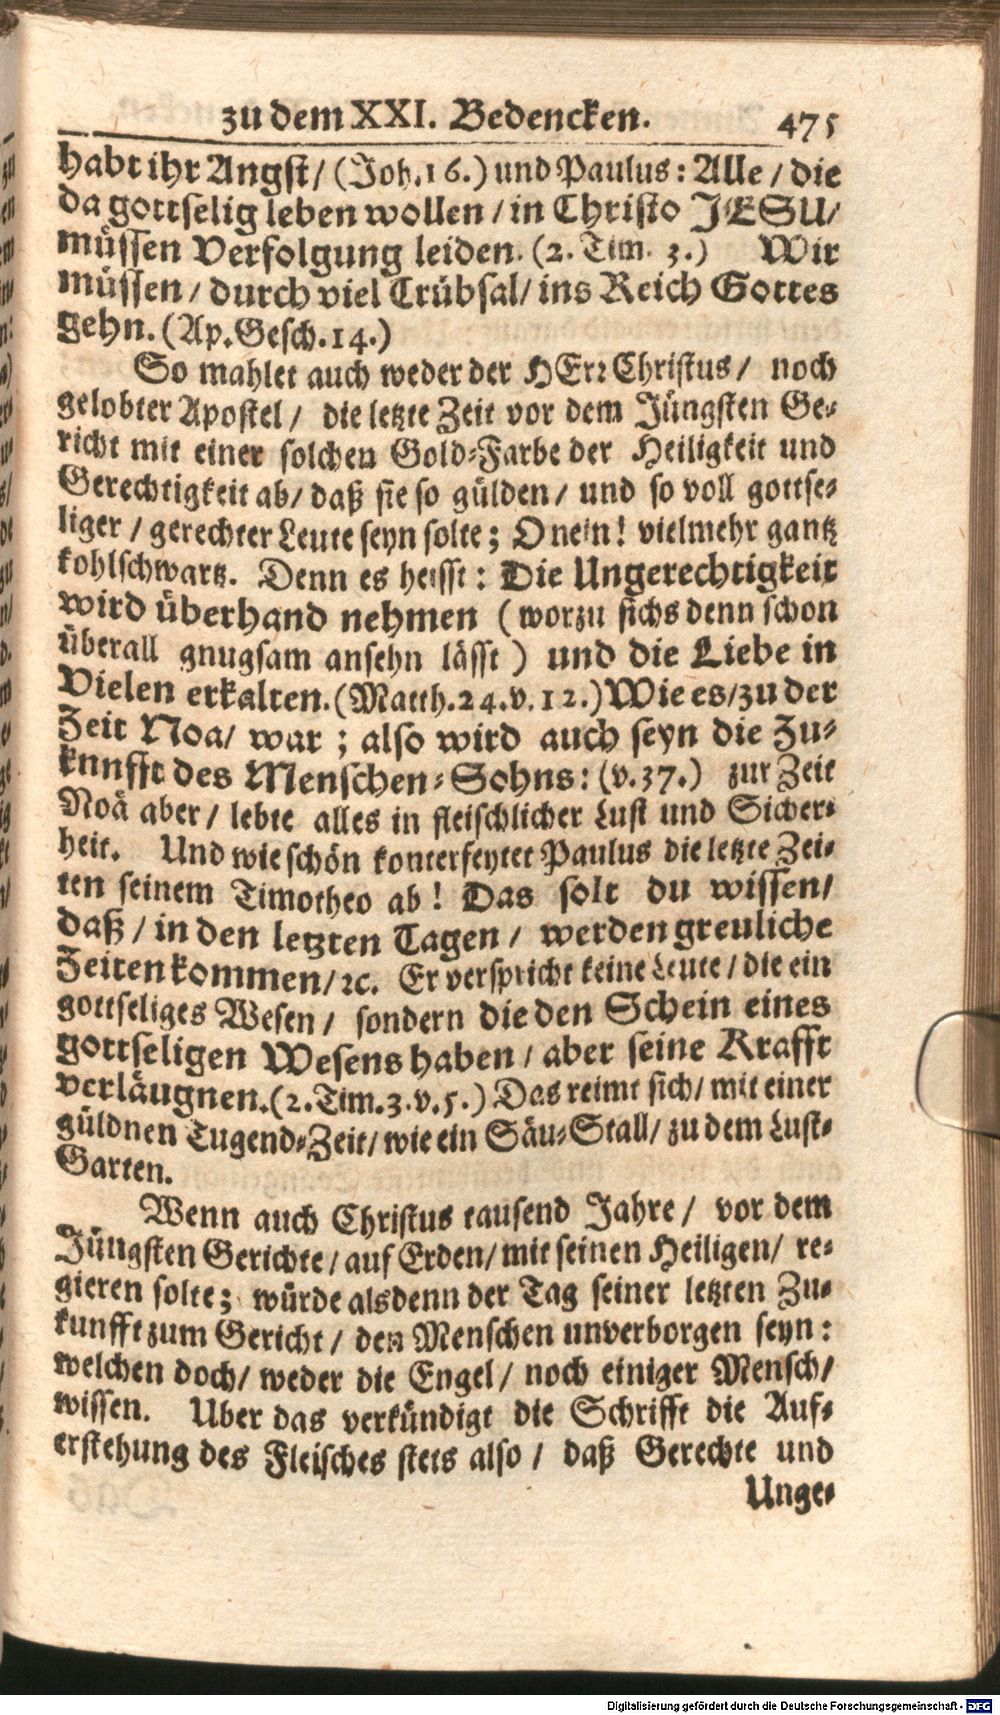 zu dem XXI. Bedencken. 475
habt ihr Angst/ (Joh. 16.) und Paulus: Alle / die
da gottselig leben wollen / in Christo JESU/
müssen Verfolgung leiden. (2. Tim. 3.) Wir
müssen / durch viel Trübsal/ ins Reich Gottes
gehn. (Ap. Gesch. 14.)
So mahlet auch weder der HErr Christus / noch
gelobter Apostel / die letzte Zeit vor dem Jüngsten Ge-
richt mit einer solchen Gold-Farbe der Heiligkeit und
Gerechtigkeit ab/ daß sie so gülden / und so voll gottse-
liger / gerechter Leute seyn solte; O nein! vielmehr gantz
kohlschwartz. Denn es heisst: Die Ungerechtigkeit
wird überhand nehmen (worzu sichs denn schon
überall gnugsam ansehn lässt) und die Liebe in
Vielen erkalten. (Matth. 24. v. 12.) Wie es/ zu der
Zeit Noa/ war; also wird auch seyn die Zu-
knnfft des Menschen-Sohns: (v. 37.) zur Zeit
Noä aber / lebte alles in fleischlicher Lust und Sicher-
heit. Und wie schön konterfeytet Paulus die letzte Zei-
ten seinem Timotheo ab! Das solt du wissen/
daß / in den letzten Tagen / werden greuliche
Zeiten kommen/ ꝛc. Er verspricht keine Leute / die ein
gottseliges Wesen / sondern die den Schein eines
gottseligen Wesens haben / aber seine Krafft
verläugnen. (2. Tim. 3. v. 5.) Das reimt sich/ mit einer
güldnen Tugend-Zeit/ wie ein Säu-Stall/ zu dem Lust-
Garten.
Wenn auch Christus tausend Jahre / vor dem
Jüngsten Gerichte / auf Erden/ mit seinen Heiligen/ re-
gieren solte; würde alsdenn der Tag seiner letzten Zu-
kunfft zum Gericht / den Menschen unverborgen seyn:
welchen doch/ weder die Engel / noch einiger Mensch/
wissen. Uber das verkündigt die Schrifft die Auf-
erstehung des Fleisches stets also / daß Gerechte und
Unge-
Digitalisierung gefördert durch die Deutsche Forschungsgemeinschaft - DFG